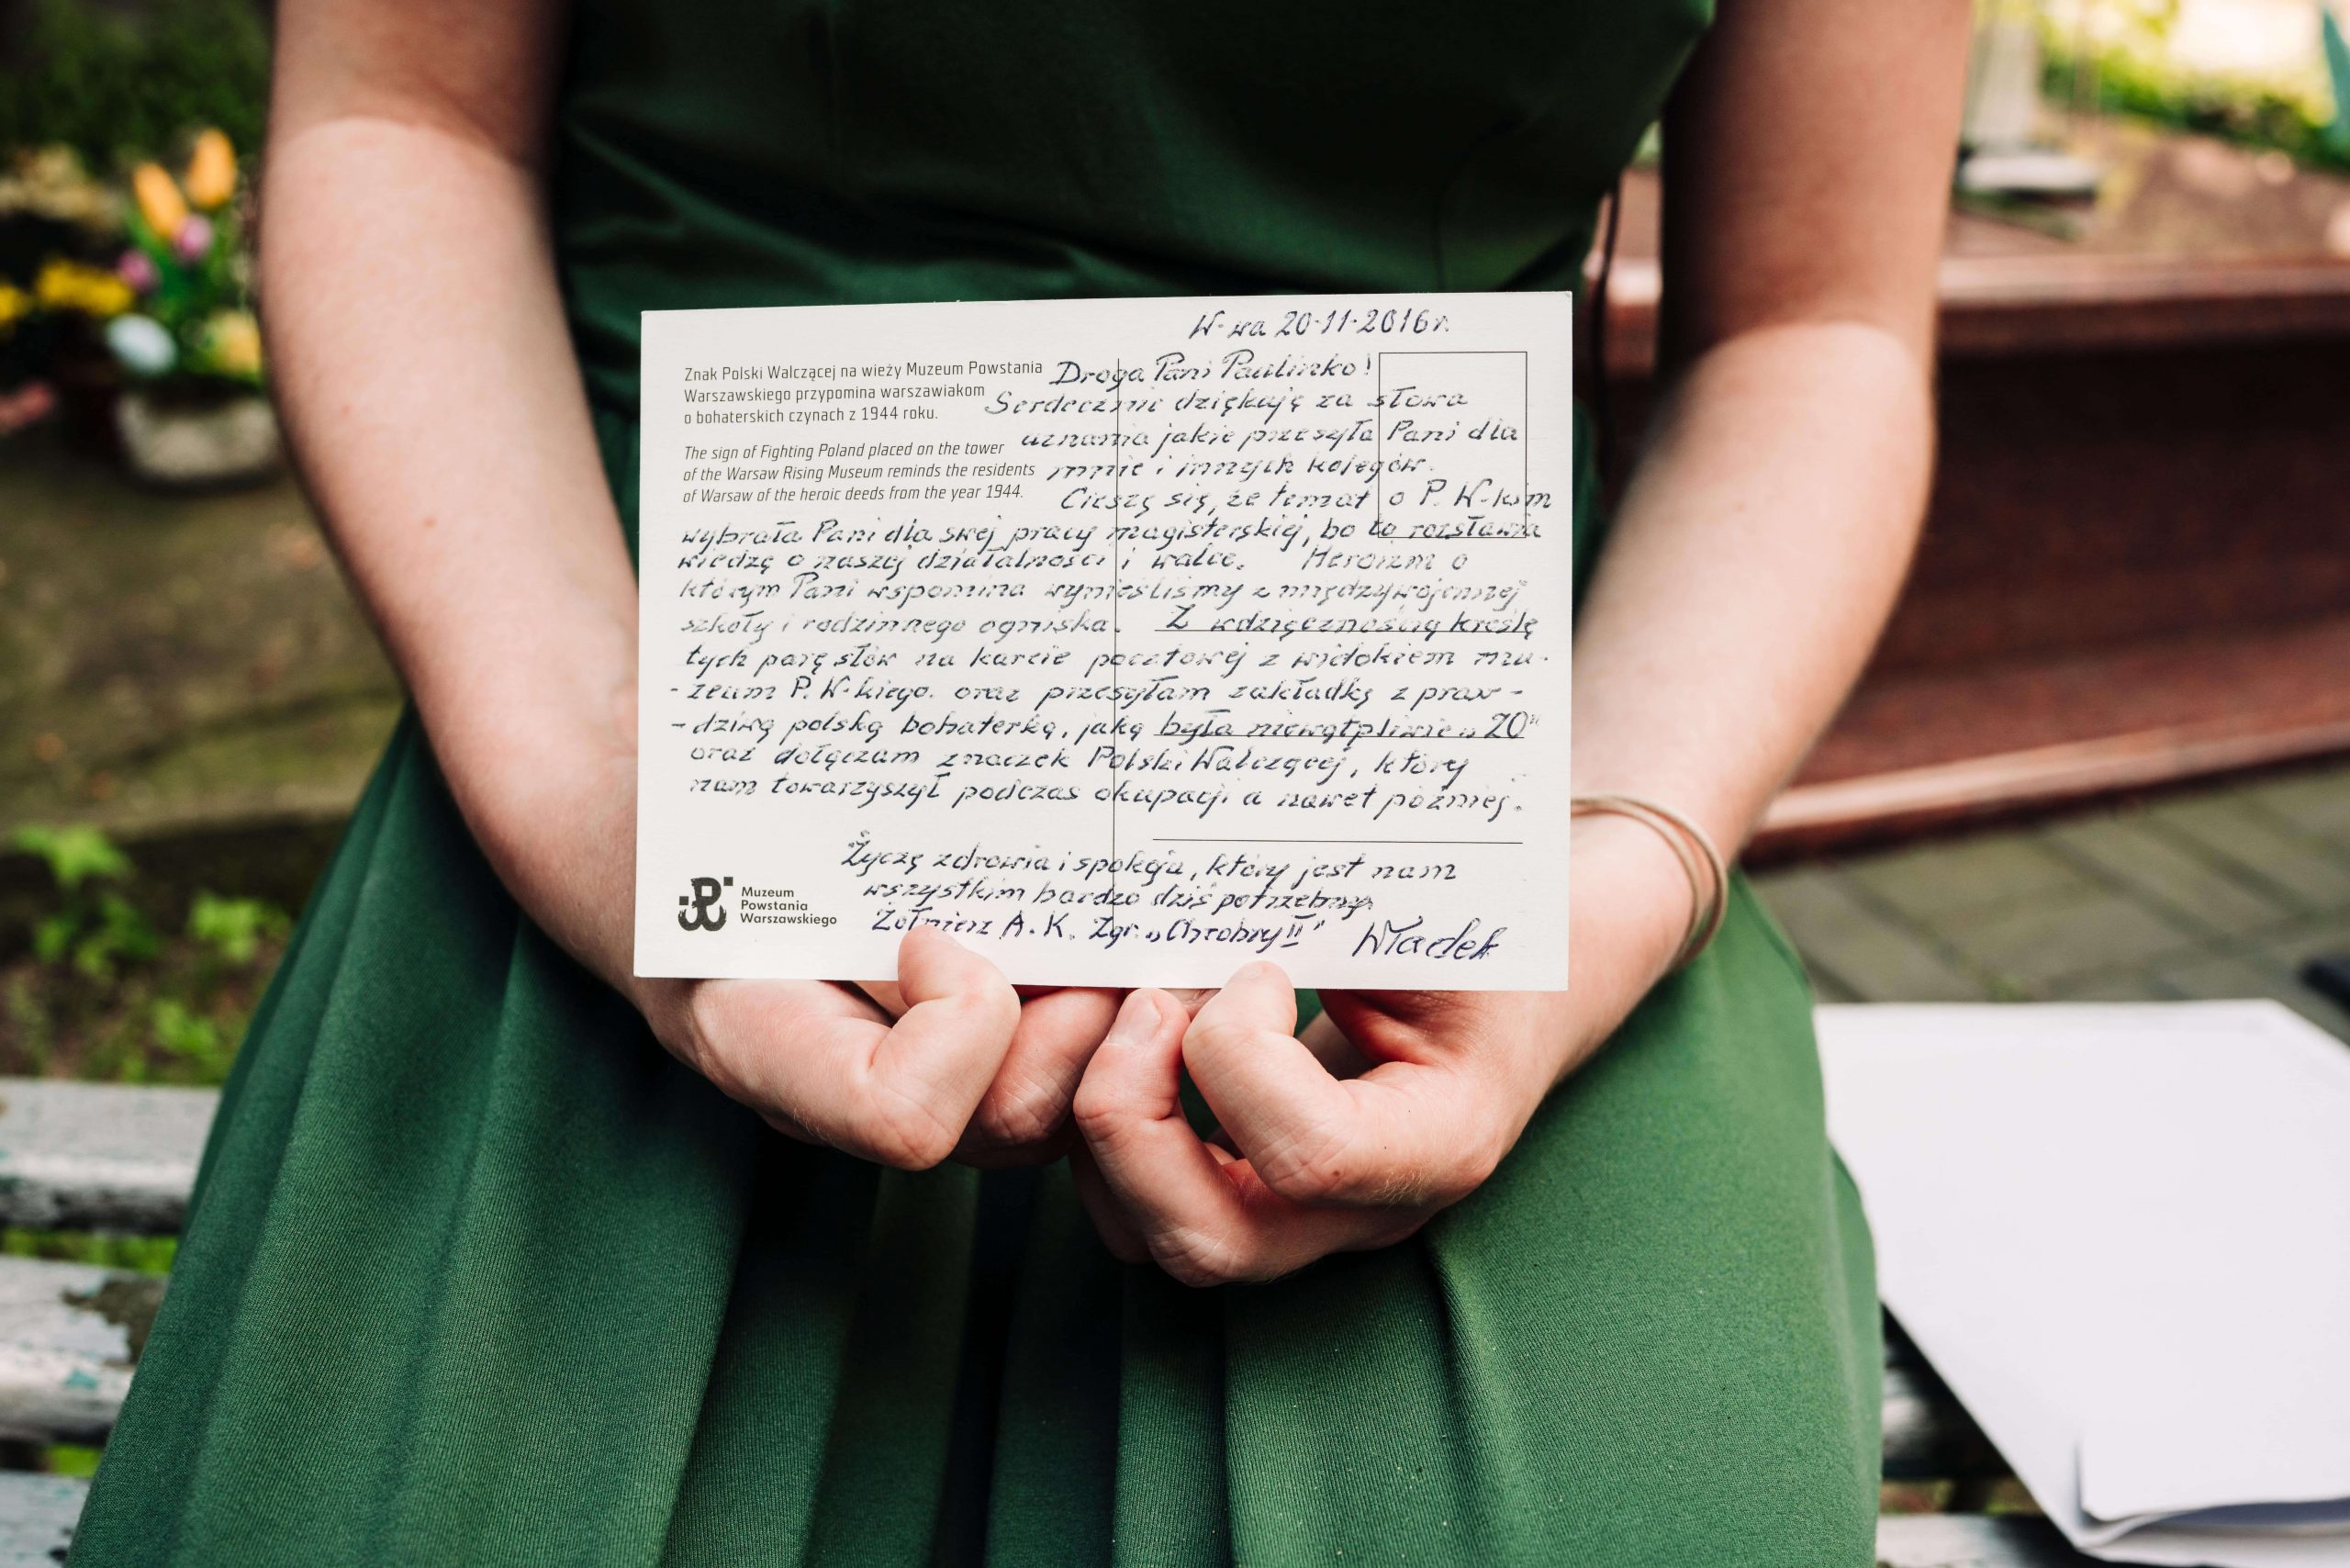 W-wa 20-11-2016r.
Znak Polski Walczącej na wieży Muzeum Powstania
Warszawskiego przypomina warszawiakom
o bohaterskich czynach z 1944 roku.
The sign of Fighting Poland placed on the tower
of the Warsaw Rising Museum reminds the residents
of Warsaw of the heroic deeds from the year 1944.
Droga Pani Paulinko!
Serdecznie dziękuję za słowa
uznania jakie przesyła Pani dla
mnie i innych kolegów.
Cieszę się, że temat o P. W-kim
wybrała Pani dla swej pracy magisterskiej, bo to rozsławia
wiedzę o naszej działalności i walce. Heroizm o
którym Pani wspomina wynieśliśmy z międzywojennej
szkoły i rodzinnego ogniska. Z wdzięcznością kreślę
tych parę słów na karcie pocztowej z widokiem mu-
-zeum P. W-kiego. oraz przesyłam zakładkę z praw-
-dziwą polską bohaterką, jaką była niewątpliwie
oraz dołączam znaczek Polski Walczącej, który
nam towarzyszył podczas okupacji a nawet później.
Życzę zdrowia i spokoju, który jest nam
wszystkim bardzo dziś potrzebny
Żołnierz A.K. Zgr. „Chrobry II" Władek
Muzeum
Powstania
Warszawskiego